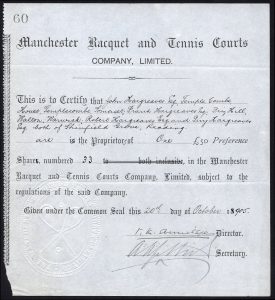 60
Manchester Racquet and Tennis Courts
COMPANY, LIMITED.
This is to Certify that John Hargreaves Esq, Temple Combe
House, Templecombe, Somerset, Frank Hargreaves Esq,
Walton, Warwick, Robert Hargreaves Esq and Hargreaves
Esq both of Shinfield Grove, Reading
are is the Proprietor of One £50 Preference
Shares, numbered 33 to both inclusive, in the Manchester
Racquet and Tennis Courts Company, Limited, subject to the
regulations of the said Company.
Given under the Common Seal this 20th day of October
Director.
Secretary.